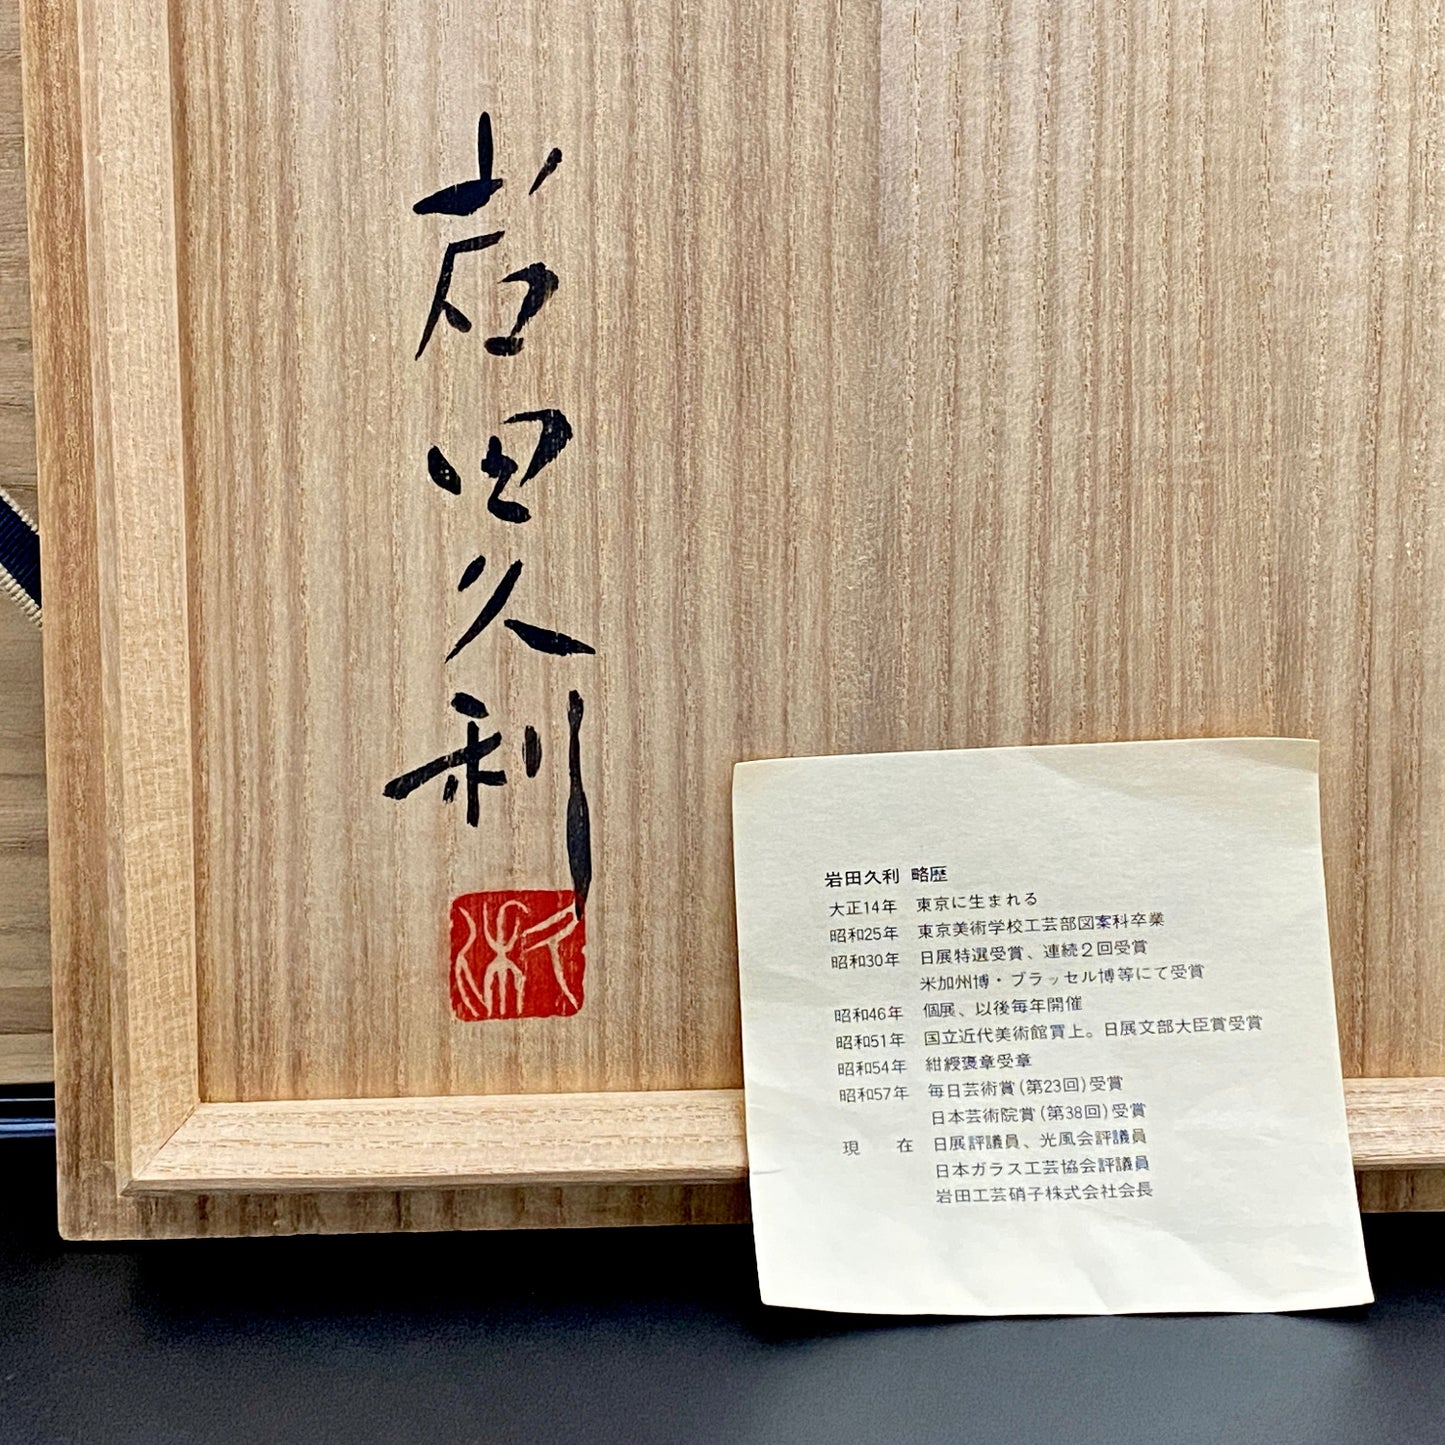 岩田久利
岩田久利 略歴
大正14年 東京に生まれる
昭和25年 東京美術学校工芸部図案科卒業
昭和30年 日展特選受賞、連続2回受賞
米加州博・ブラッセル博等にて受賞
昭和46年 個展、以後毎年開催
昭和51年 国立近代美術館買上。日展文部大臣賞受賞
昭和54年 紺綬褒章受章
昭和57年 毎日芸術賞(第23回)受賞
日本芸術院賞(第38回)受賞
現 在 日展評議員、光風会評議員
日本ガラス工芸協会評議員
岩田工芸硝子株式会社会長